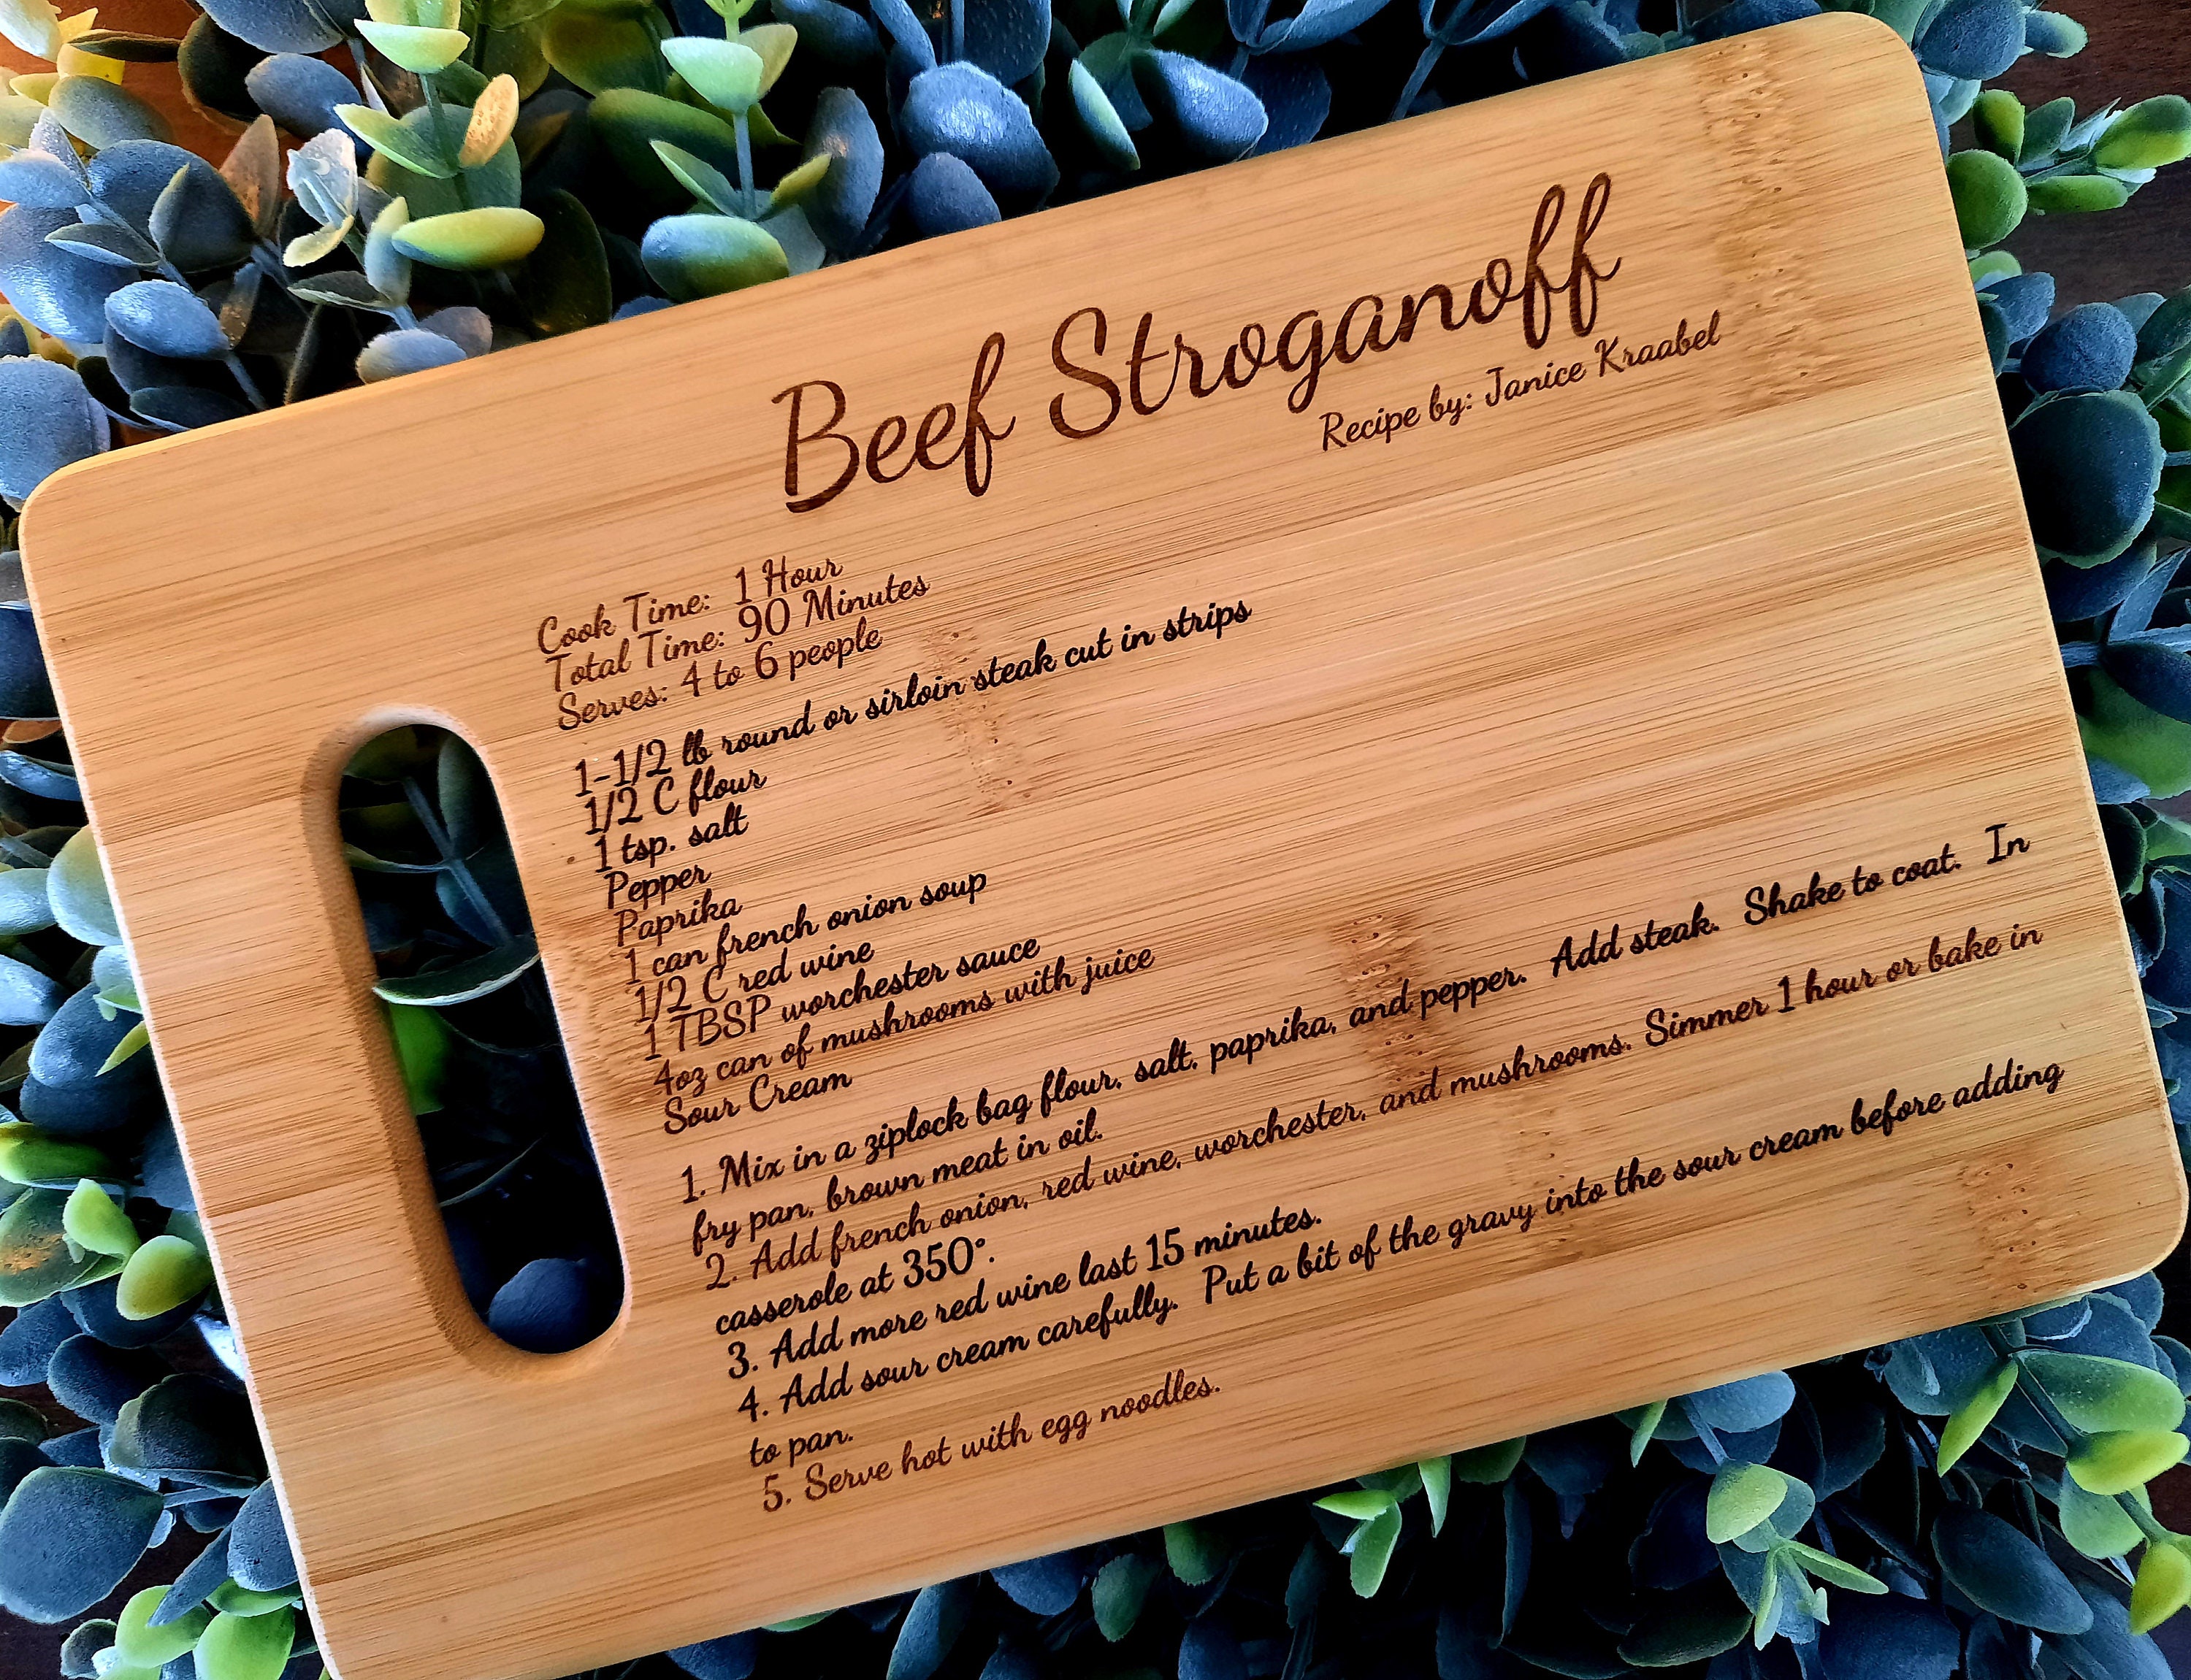 Beef Stroganoff
Recipe by: Janice Kraabel
Cook Time: 1 Hour
Total Time: 90 Minutes
Serves: 4 to 6 people
1-1/2 lb round or sirloin steak cut in strips
1/2 C flour
1 tsp. salt
Pepper
Paprika
1 can french onion soup
1/2 C red wine
1 TBSP worchester sauce
4oz can of mushrooms with juice
Sour Cream
1. Mix in a ziplock bag flour, salt, paprika, and pepper. Add steak. Shake to coat. In
fry pan, brown meat in oil.
2. Add french onion, red wine, worchester, and mushrooms. Simmer 1 hour or bake in
casserole at 350°.
3. Add more red wine last 15 minutes.
4. Add sour cream carefully. Put a bit of the gravy into the sour cream before adding
to pan.
5. Serve hot with egg noodles.